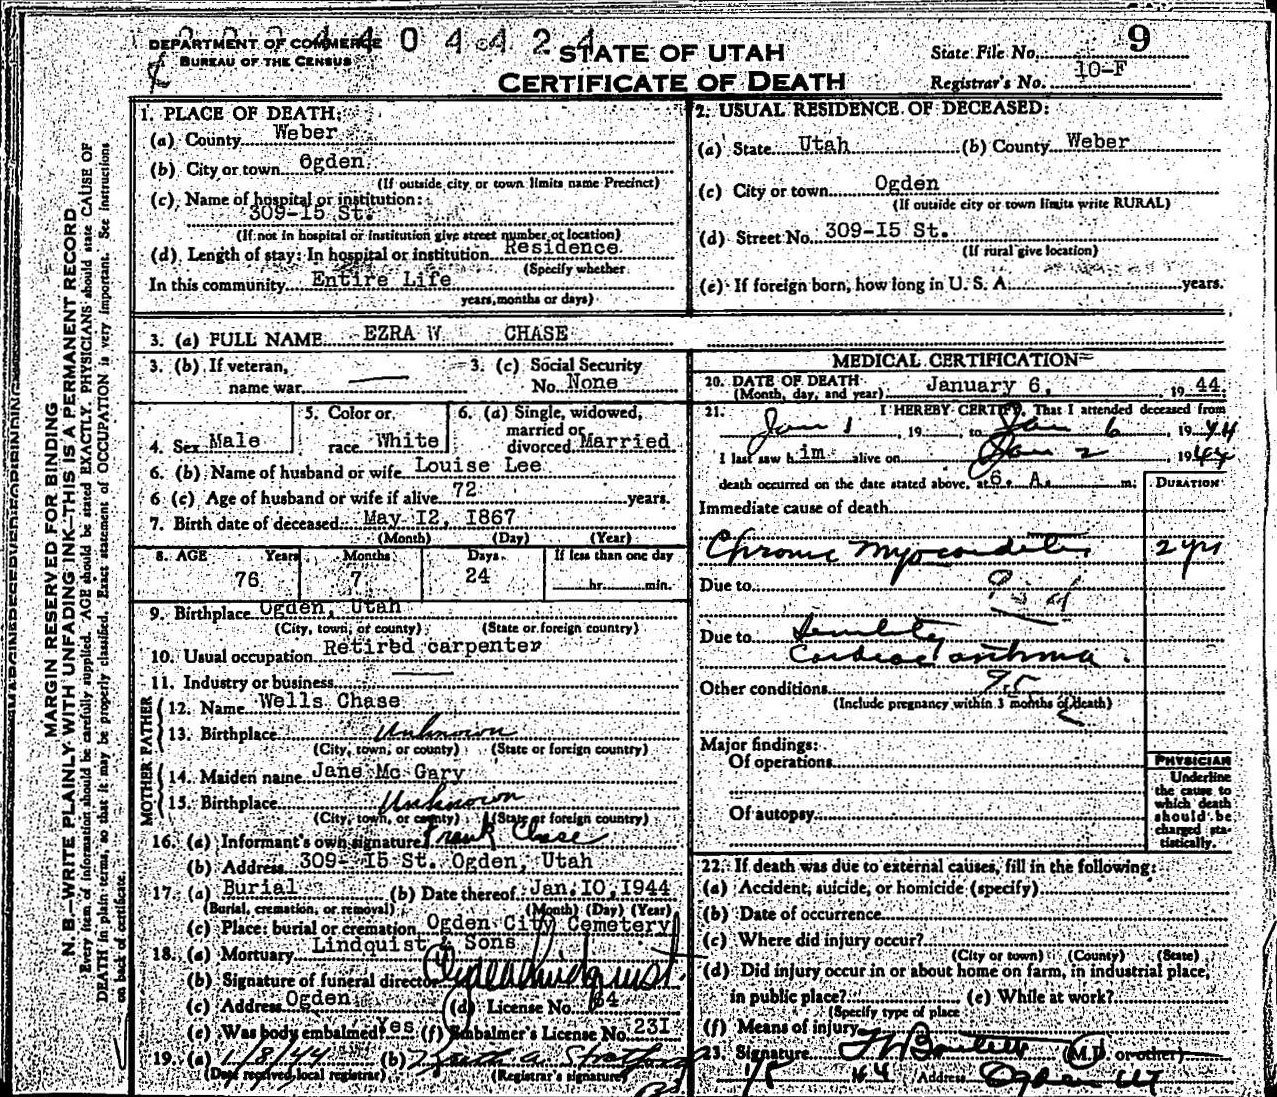 2 0 2 4 4 0 4 4 2 4
DEPARTMENT OF COMMERCE
BUREAU OF THE CENSUS
STATE OF UTAH
CERTIFICATE OF DEATH
State File No. 9
Registrar's No. 10-F
MARGIN RESERVED FOR BINDING
N. B.—WRITE PLAINLY WITH UNFADING INK—THIS IS A PERMANENT RECORD
Every item of information should be carefully supplied. AGE should be stated EXACTLY. PHYSICIANS should state CAUSE OF
DEATH in plain terms, so that it may be properly classified. Exact statement of OCCUPATION is very important. See instructions
on back of certificate.
1. PLACE OF DEATH:
(a) County Weber
(b) City or town Ogden
(If outside city or town limits name Precinct)
(c) Name of hospital or institution:
309-I5 St.
(If not in hospital or institution give street number or location)
(d) Length of stay: In hospital or institution Residence
(Specify whether
In this community Entire Life
years, months or days)
2. USUAL RESIDENCE OF DECEASED:
(a) State Utah (b) County Weber
(c) City or town Ogden
(If outside city or town limits write RURAL)
(d) Street No. 309-I5 St.
(If rural give location)
(e) If foreign born, how long in U. S. A. years.
3. (a) FULL NAME EZRA W CHASE
3. (b) If veteran,
name war
3. (c) Social Security
No. None
4. Sex Male
5. Color or
race White
6. (a) Single, widowed,
married or
divorced Married
6. (b) Name of husband or wife Louise Lee
6 (c) Age of husband or wife if alive 72 years.
7. Birth date of deceased May I2, I867
(Month) (Day) (Year)
8. AGE Years Months Days If less than one day
76 7 24 hr. min.
9. Birthplace Ogden, Utah
(City, town, or county) (State or foreign country)
10. Usual occupation Retired carpenter
11. Industry or business
FATHER
12. Name Wells Chase
13. Birthplace Unknown
(City, town, or county) (State or foreign country)
MOTHER
14. Maiden name Jane Mc Gary
15. Birthplace Unknown
(City, town, or county) (State or foreign country)
16. (a) Informant's own signature Frank Chase
(b) Address 309- I5 St. Ogden, Utah
17. (a) Burial (b) Date thereof Jan. IO, I944
(Burial, cremation, or removal) (Month) (Day) (Year)
(c) Place: burial or cremation Ogden City Cemetery
18. (a) Mortuary Lindquist & Sons
(b) Signature of funeral director
(c) Address Ogden (d) License No. 64
(e) Was body embalmed Yes (f) Embalmer's License No. 23I
19. (a) 1/8/44 (b)
(Date received local registrar) (Registrar's signature)
MEDICAL CERTIFICATION
20. DATE OF DEATH
(Month, day, and year) January 6, 19 44
21. I HEREBY CERTIFY, That I attended deceased from
Jan 1, 19 , to Jan 6, 19 44
I last saw h im alive on Jan 2, 19 44
death occurred on the date stated above, at 6. A. m.
DURATION
Immediate cause of death
Chronic Myocarditis 2 yrs
Due to
Due to Senility
Cardiac asthma.
Other conditions
(Include pregnancy within 3 months of death)
Major findings:
Of operations
Of autopsy
PHYSICIAN
Underline
the cause to
which death
should be
charged sta-
tistically.
22. If death was due to external causes, fill in the following:
(a) Accident, suicide, or homicide (specify)
(b) Date of occurrence
(c) Where did injury occur?
(City or town) (County) (State)
(d) Did injury occur in or about home on farm, in industrial place,
in public place? (e) While at work?
(Specify type of place
(f) Means of injury
23. Signature (M.D. or other)
1/8 44 Address Ogden Ut